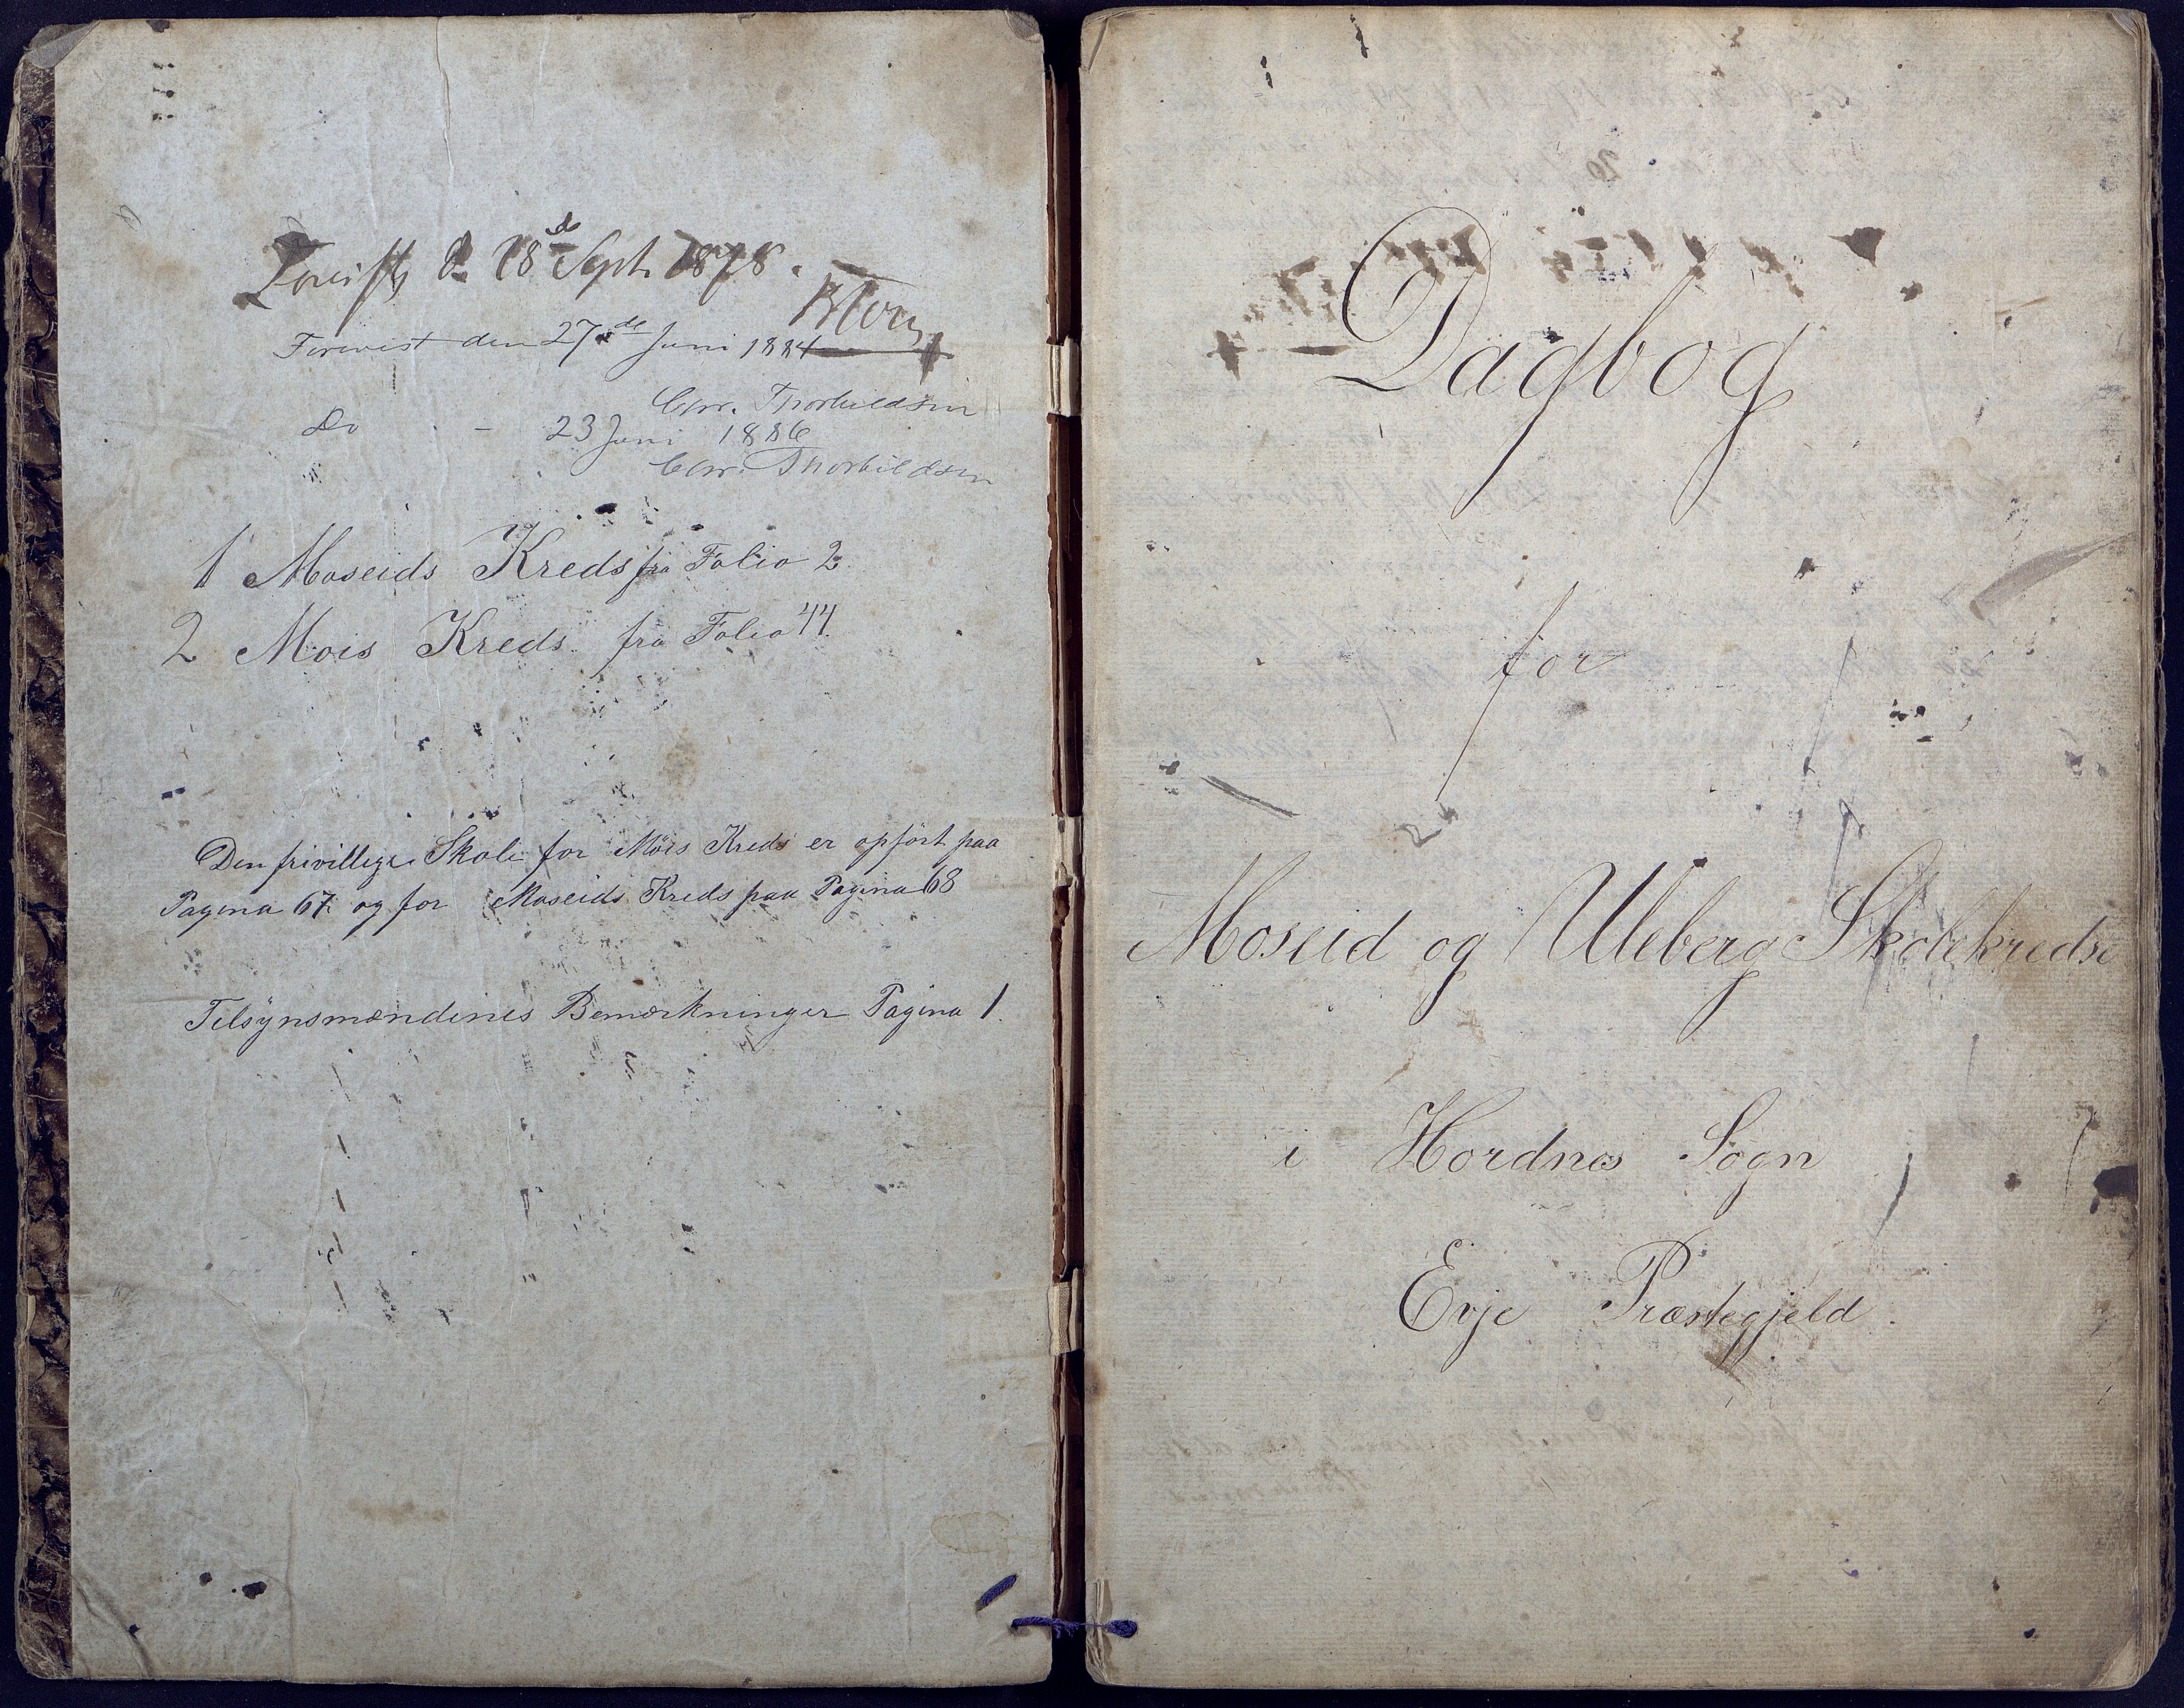 Forevist d. 18de Sept. 1878.
Forevist den 27de Juni 1884
Chr. Thorkildsen
Do - 23 Juni 1886
Chr. Thorkildsen
1 Moseids Kreds fra Folio 2
2 Mois Kreds fra Folio 44
Den frivillige Skole for Mois Kreds er opført paa
Pagina 67 og for Moseids Kreds paa Pagina 68
Tilsynsmændenes Bemærkninger Pagina 1.
Dagbog
for
Moseid og Uleberg Skolekredse
i Hordnes Sogn
Evje Præstegjeld.